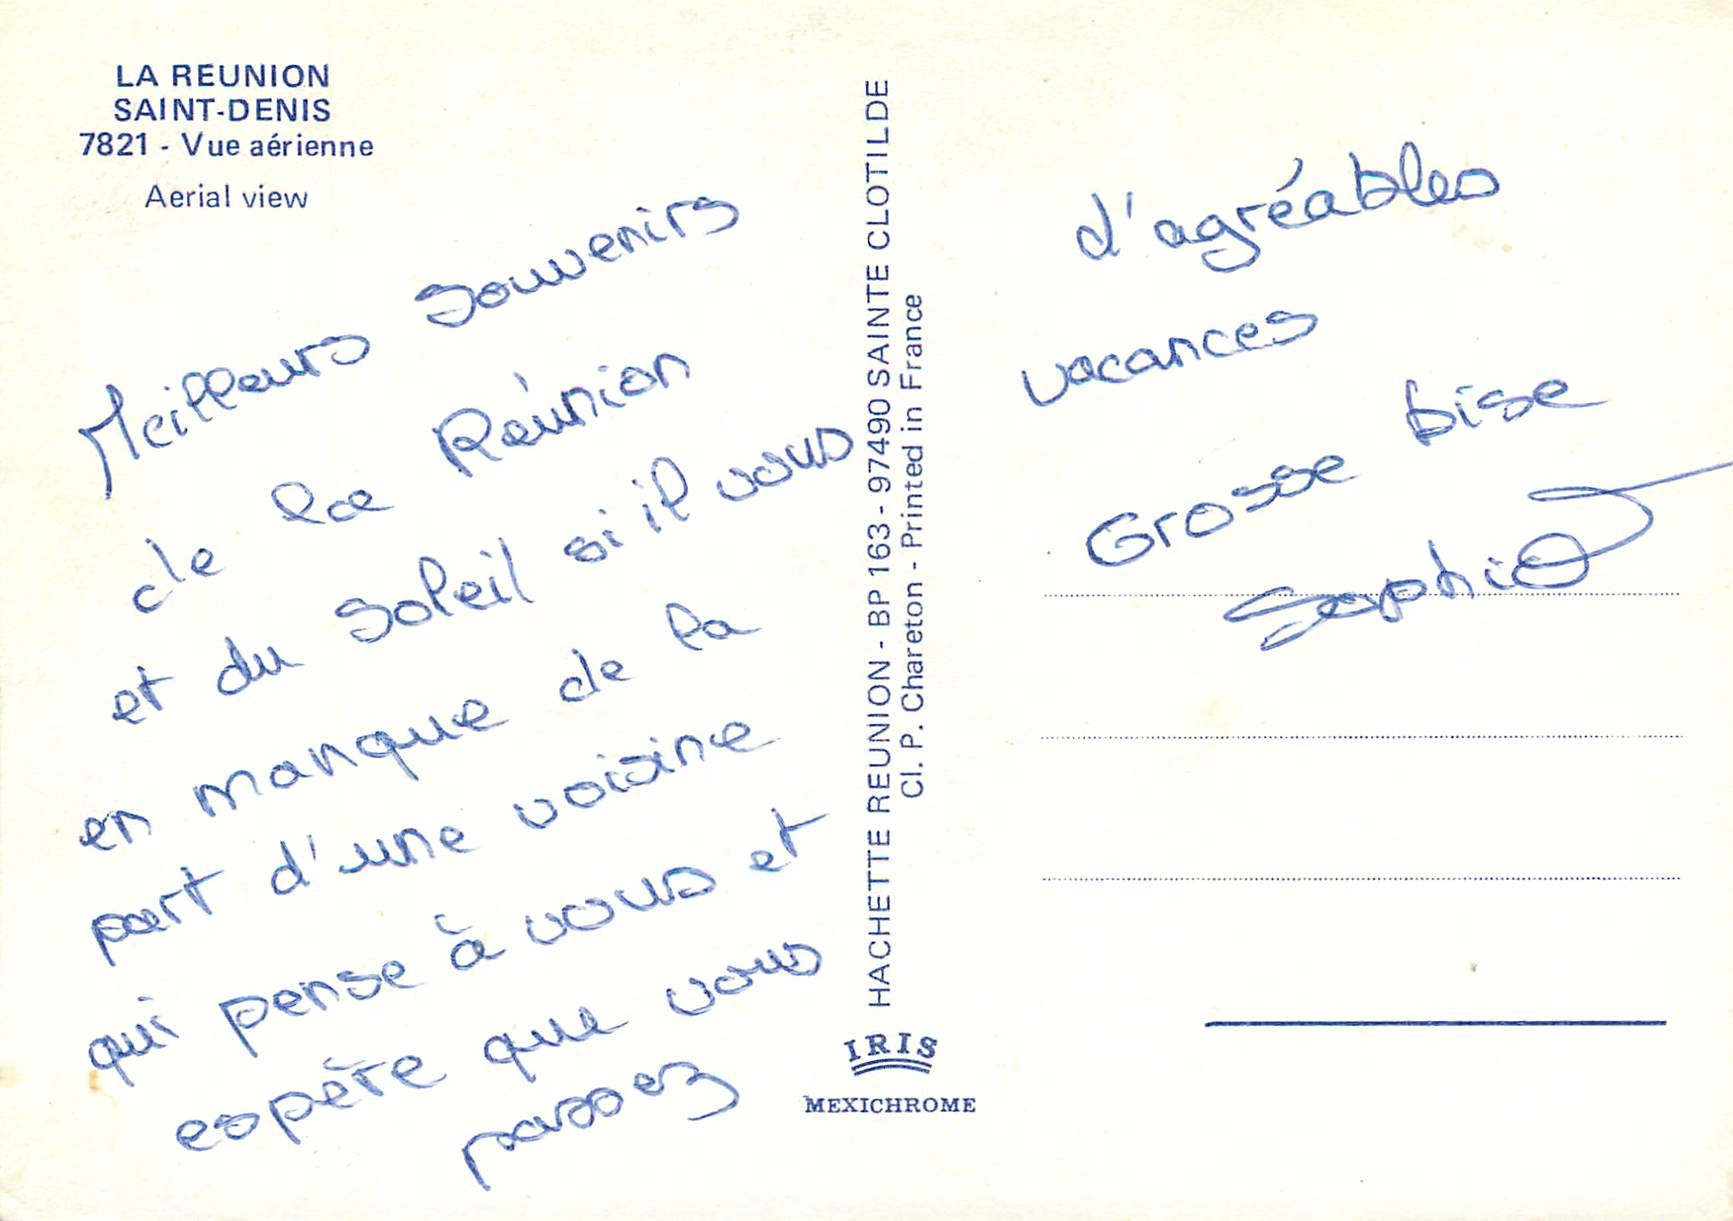 LA REUNION
SAINT-DENIS
7821 - Vue aérienne
Aerial view
Meilleurs souvenirs
de la Réunion
et du soleil si il vous
en manque de la
part d'une voisine
qui pense à vous et
espère que vous
passez
HACHETTE REUNION - BP 163 - 97490 SAINTE CLOTILDE
Cl. P. Chareton - Printed in France
IRIS
MEXICHROME
d'agréables
vacances
Grosse bise
Sophie